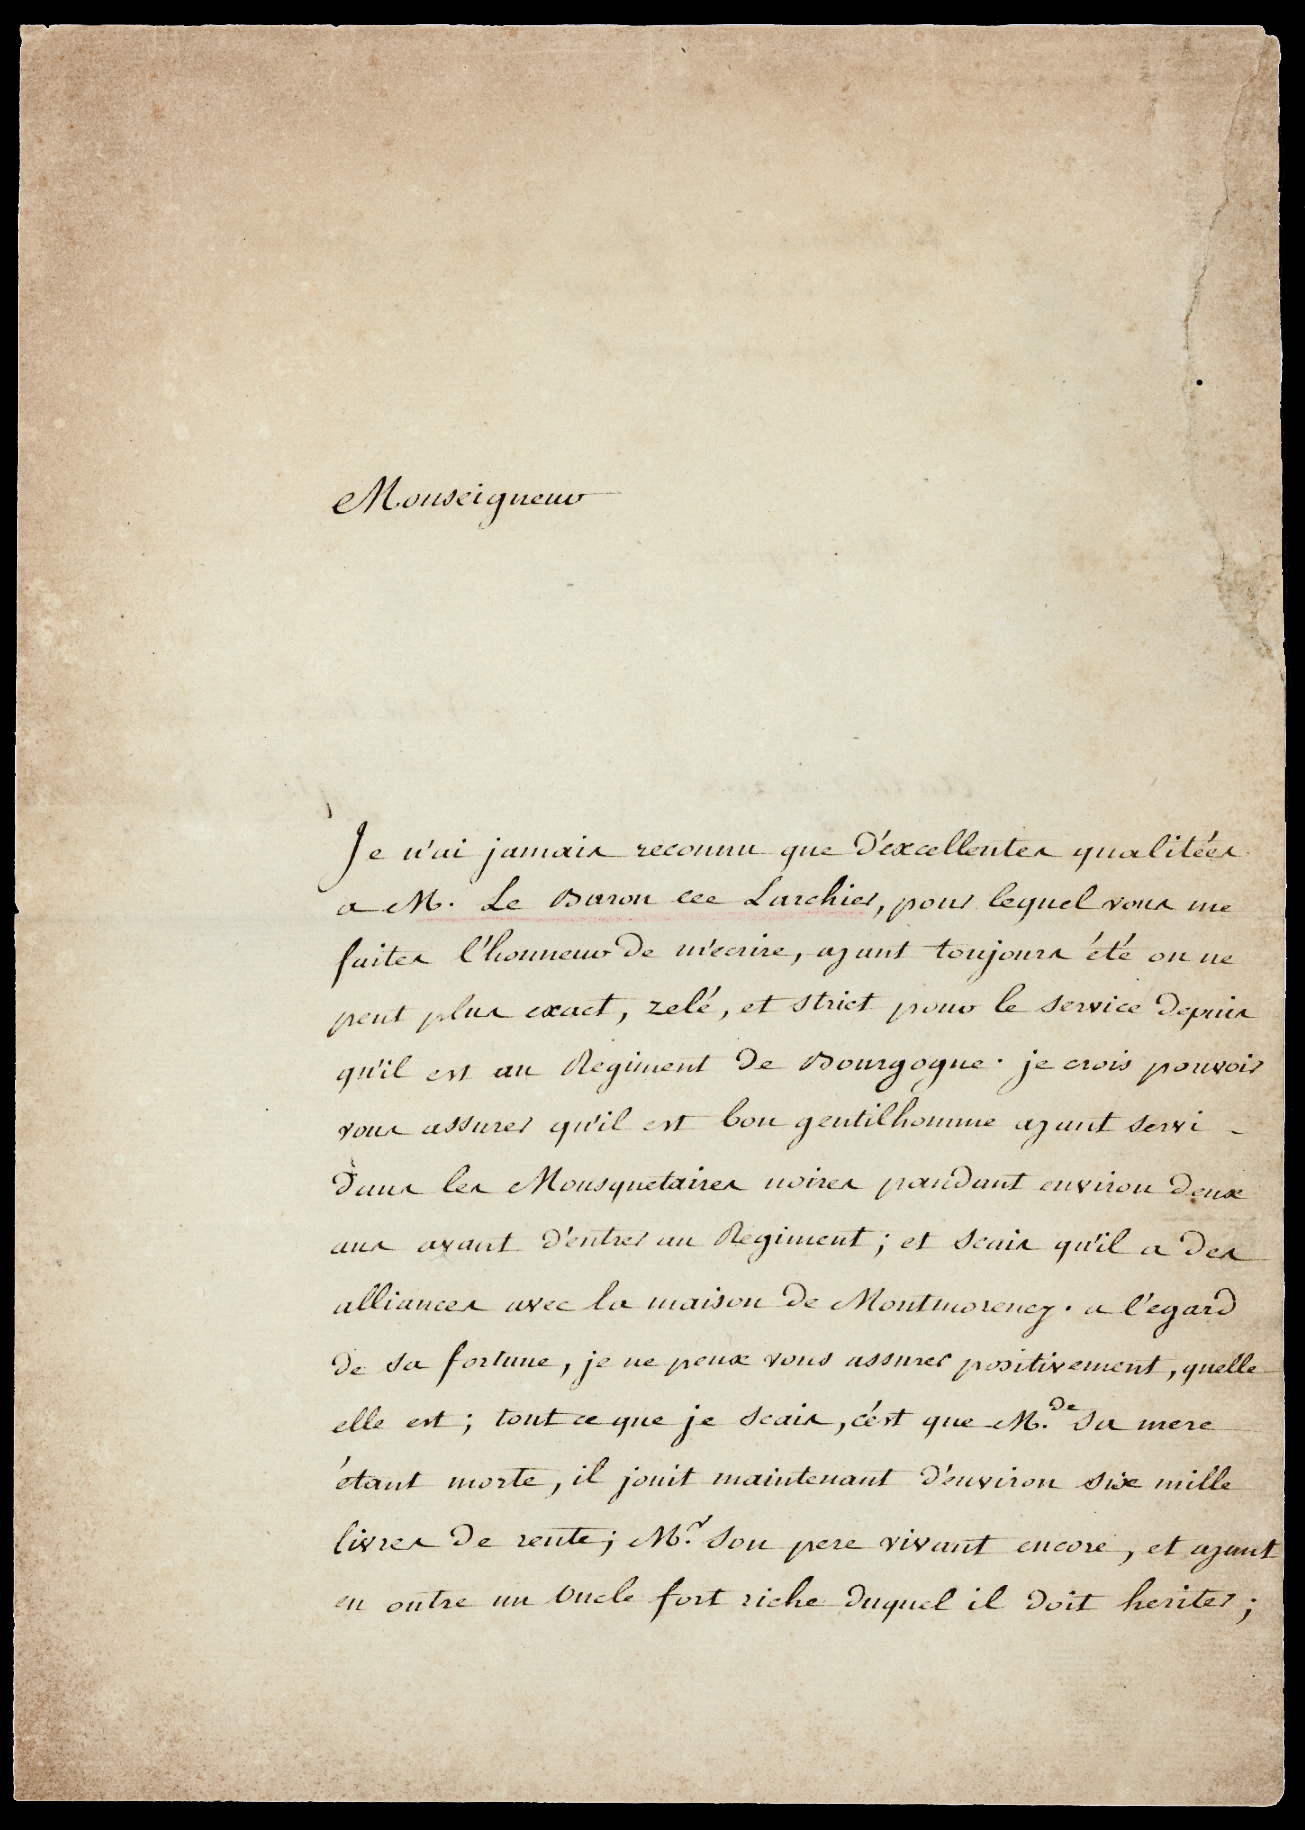 Monseigneur
Je n'ai jamais reconnu que d'excellentes qualitées
a M. Le Baron de Larchier, pour lequel vous me
faites l'honneur de m'ecrire, ayant toujours été on ne
peut plus exact, zelé, et strict pour le service depuis
qu'il est au Regiment de Bourgogne. je crois pouvoir
vous assurer qu'il est bon gentilhomme ayant servi -
dans les Mousquetaires noires pandant environ deux
ans avant d'entrer au Regiment; et scais qu'il a des
alliances avec la maison de Montmorency. a l'egard
de sa fortune, je ne peux vous assurer positivement, quelle
elle est; tout ce que je scais, c'est que M.de Sa mere
étant morte, il jouit maintenant d'environ six mille
livres de rente; M.r Son pere vivant encore, et ayant
en outre un Oncle fort riche duquel il doit heriter;